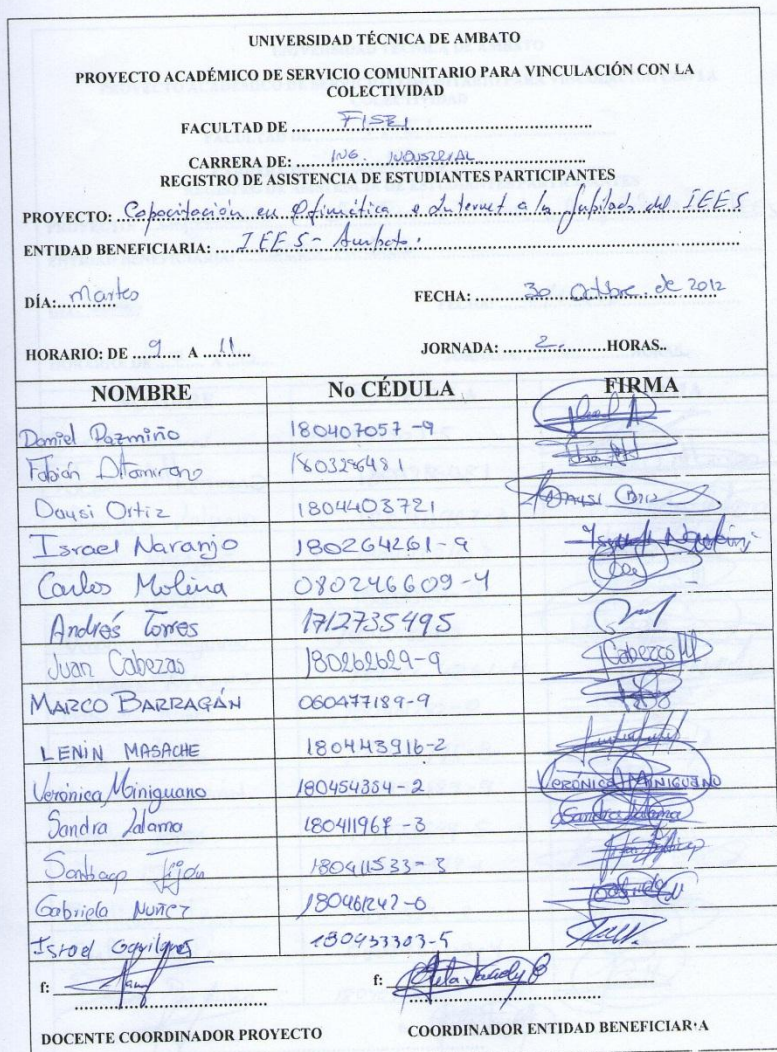 UNIVERSIDAD TÉCNICA DE AMBATO
PROYECTO ACADÉMICO DE SERVICIO COMUNITARIO PARA VINCULACIÓN CON LA
COLECTIVIDAD
FACULTAD DE FISEI
CARRERA DE: ING. INDUSTRIAL
REGISTRO DE ASISTENCIA DE ESTUDIANTES PARTICIPANTES
PROYECTO: Capacitación en Ofimática e Internet a los Jubilados del IEES
ENTIDAD BENEFICIARIA: IEES - Ambato.
DÍA: Martes FECHA: 30 Octubre de 2012
HORARIO: DE 9 A 11 JORNADA: 2 HORAS..
NOMBRE No CÉDULA FIRMA
Daniel Pazmiño 180407057-9
Fabián Altamirano 180329648 1
Daysi Ortiz 1804403721 Daysi Ortiz
Israel Naranjo 180264261-9
Carlos Molina 080246609-4
Andrés Torres 1712735495
Juan Cabezas 180262629-9 Cabezas
MARCO BARRAGÁN 060477189-9
LENIN MASACHE 180443916-2
Verónica Miniguano 180454354-2 VERÓNICA MINIGUANO
Sandra Jalama 180411967-3 Sandra Jalama
Santiago Tijón 180411533-3
Gabriela Nuñez 180461247-0
Israel Gavilanes 180933303-5
f: f:
DOCENTE COORDINADOR PROYECTO COORDINADOR ENTIDAD BENEFICIARIA